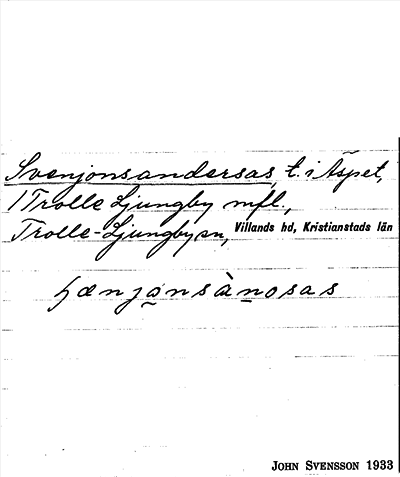 Svenjonsandersas, t. i Äspet,
1 Trolle Ljungby mfl.,
Trolle-Ljungby sn, Villands hd, Kristianstads län
JOHN SVENSSON 1933